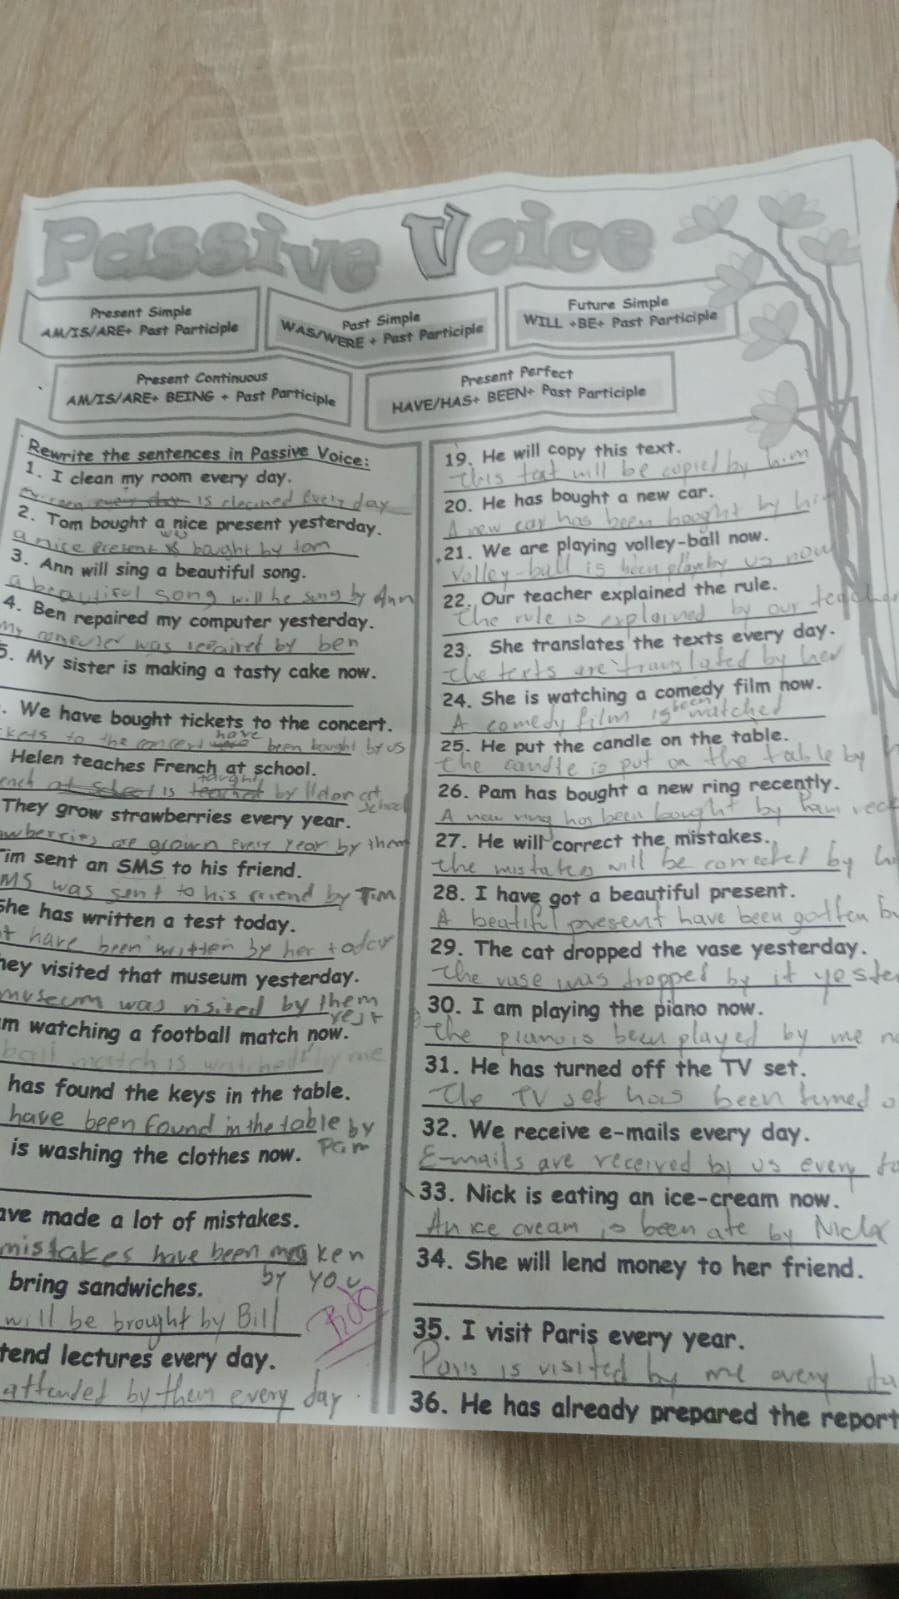 Passive Voice
Present Simple
AM/IS/ARE+ Past Participle
Past Simple
WAS/WERE + Past Participle
Future Simple
WILL +BE+ Past Participle
Present Continuous
AM/IS/ARE+ BEING + Past Participle
Present Perfect
HAVE/HAS+ BEEN+ Past Participle
Rewrite the sentences in Passive Voice:
1. I clean my room every day.
is cleaned every day
2. Tom bought a nice present yesterday.
a nice present was bought by tom
3. Ann will sing a beautiful song.
a beautiful song will be sung by Ann
4. Ben repaired my computer yesterday.
My computer was repaired by ben
5. My sister is making a tasty cake now.
. We have bought tickets to the concert.
kets to the concert have been bought by us
Helen teaches French at school.
is taught by at
School
They grow strawberries every year.
wberries are grown every year by them
im sent an SMS to his friend.
MS was sent to his friend by Tim
She has written a test today.
t have been written by her today
hey visited that museum yesterday.
museum was visited by them
yest
m watching a football match now.
ball match is watched by me
has found the keys in the table.
have been found in the table by
Pam
is washing the clothes now.
ave made a lot of mistakes.
mistakes have been
by you
bring sandwiches.
will be brought by Bill
tend lectures every day.
attended by them every day
19. He will copy this text.
This text will be copied by him
20. He has bought a new car.
A new car has been bought by hi
21. We are playing volley-ball now.
Volley-ball is been by us now
22. Our teacher explained the rule.
The rule is explained by our teacher
23. She translates the texts every day.
the texts are translated by her
24. She is watching a comedy film now.
A comedy film is been watched
25. He put the candle on the table.
the candle is put on the table by h
26. Pam has bought a new ring recently.
A new ring has been bought by Pam rece
27. He will correct the mistakes.
the mistakes will be corrected by hi
28. I have got a beautiful present.
A beatiful present have been gotten by
29. The cat dropped the vase yesterday.
the vase was dropped by it yeste
30. I am playing the piano now.
the piano is been played by me no
31. He has turned off the TV set.
The TV set has been turned o
32. We receive e-mails every day.
E-mails are received by us every da
33. Nick is eating an ice-cream now.
An ice cream is been ate by Nick
34. She will lend money to her friend.
35. I visit Paris every year.
Paris is visited by me every
36. He has already prepared the report